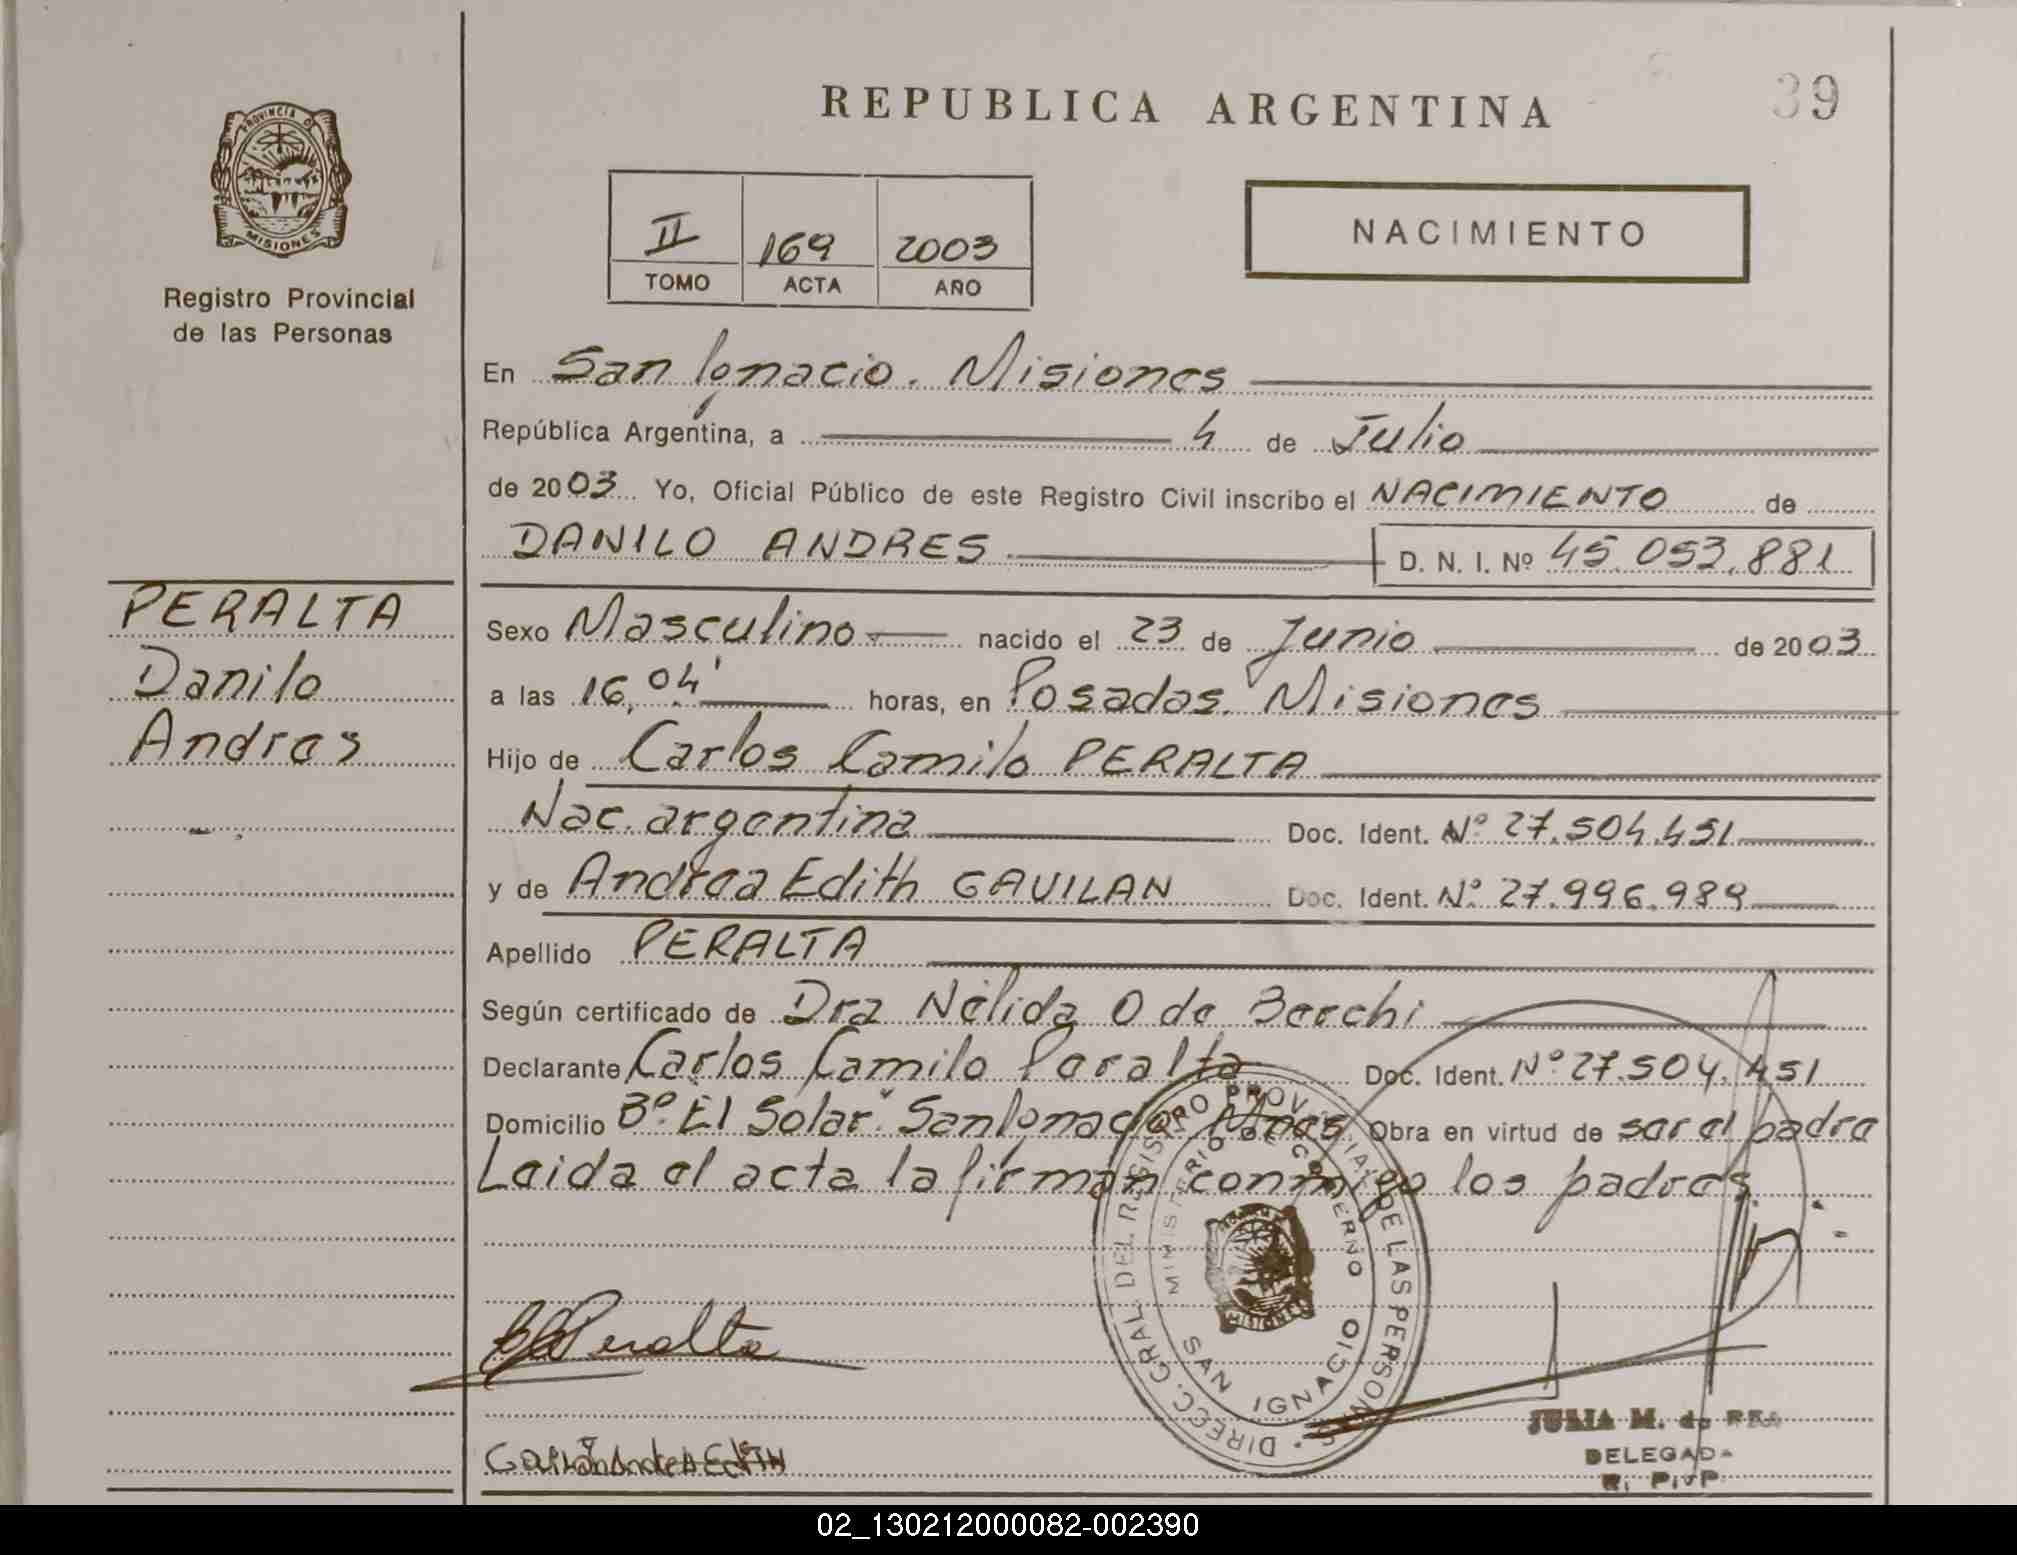 REPUBLICA ARGENTINA
39
PROVINCIA D
MISIONES
Registro Provincial
de las Personas
II 169 2003
TOMO ACTA AÑO
NACIMIENTO
En San Ignacio. Misiones
República Argentina, a 4 de Julio
de 2003 Yo, Oficial Público de este Registro Civil inscribo el NACIMIENTO de
DANILO ANDRES D. N. I. Nº 45.053.881
PERALTA
Danilo
Andres
Sexo Masculino nacido el 23 de Junio de 2003
a las 16,04' horas, en Posadas. Misiones
Hijo de Carlos Camilo PERALTA
Nac. argentina Doc. Ident. Nº 27.504.451
y de Andrea Edith GAVILAN Doc. Ident. Nº 27.996.989
Apellido PERALTA
Según certificado de Dra Nélida O de Berchi
Declarante Carlos Camilo Peralta Doc. Ident. Nº 27.504.451
Domicilio Bº. El Solar. San Ignacio Mnes Obra en virtud de ser el padre
Leida el acta la firman conmigo los padres.
DIRECC. GRAL. DEL REGISTRO PROVINCIAL DE LAS PERSONAS
MINISTERIO DE GOBIERNO
MISIONES
SAN IGNACIO
Peralta
Gavilán Andrea Edith
JULIA M. de REA
DELEGADA
R. P. P.
02_130212000082-002390